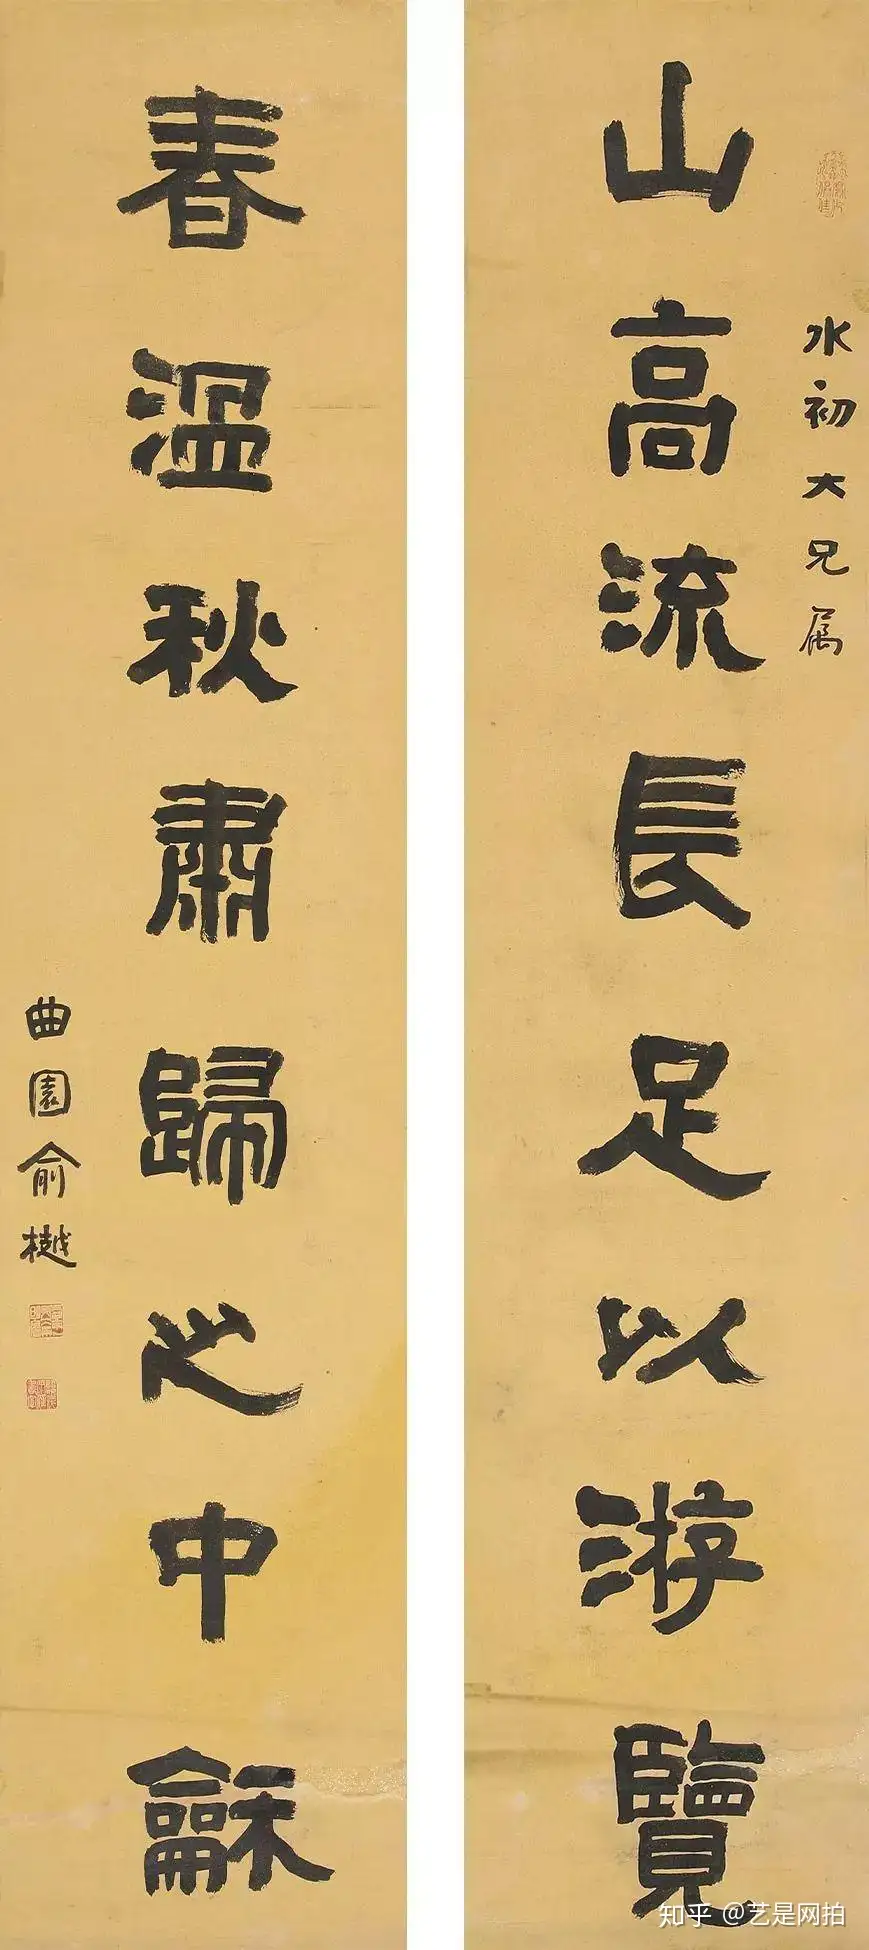 水初大兄属
山高流長足以游覽
春温秋肅歸之中龢
曲園俞樾
知乎 @艺是网拍